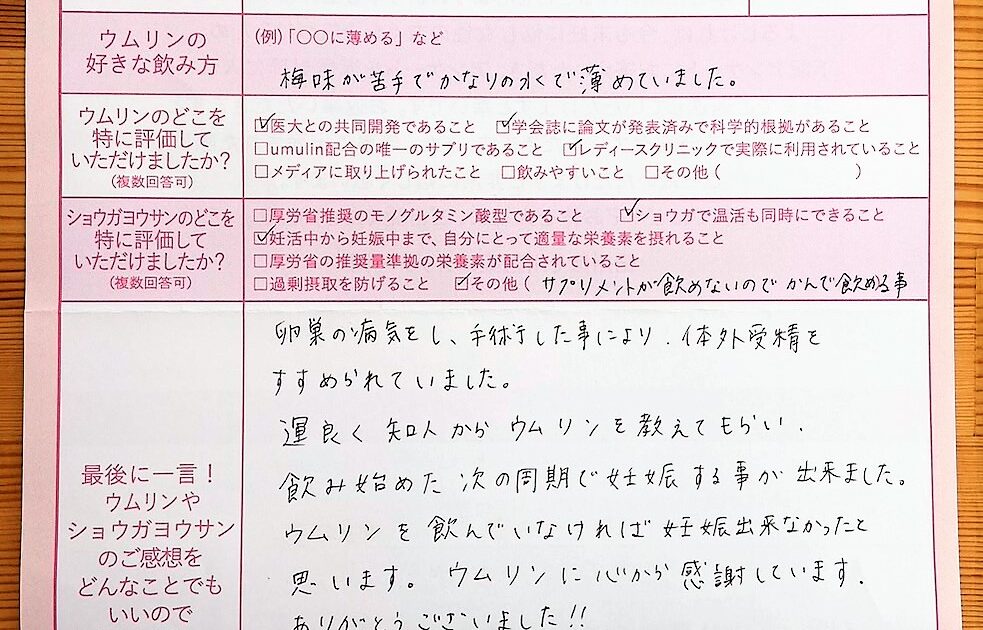 ウムリンの
好きな飲み方
(例)「〇〇に薄める」など
梅味が苦手でかなりの水で薄めていました。
ウムリンのどこを
特に評価して
いただけましたか?
(複数回答可)
☑医大との共同開発であること ☑学会誌に論文が発表済みで科学的根拠があること
□umulin配合の唯一のサプリであること ☑レディースクリニックで実際に利用されていること
□メディアに取り上げられたこと □飲みやすいこと □その他( )
ショウガヨウサンのどこを
特に評価して
いただけましたか?
(複数回答可)
□厚労省推奨のモノグルタミン酸型であること ☑ショウガで温活も同時にできること
☑妊活中から妊娠中まで、自分にとって適量な栄養素を摂れること
□厚労省の推奨量準拠の栄養素が配合されていること
□過剰摂取を防げること ☑その他( サプリメントが飲めないので かんで飲める事
最後に一言!
ウムリンや
ショウガヨウサン
のご感想を
どんなことでも
いいので
卵巣の病気をし、手術した事により、体外受精を
すすめられていました。
運良く知人からウムリンを教えてもらい、
飲み始めた次の周期で妊娠する事が出来ました。
ウムリンを飲んでいなければ妊娠出来なかったと
思います。ウムリンに心から感謝しています。
ありがとうございました!!